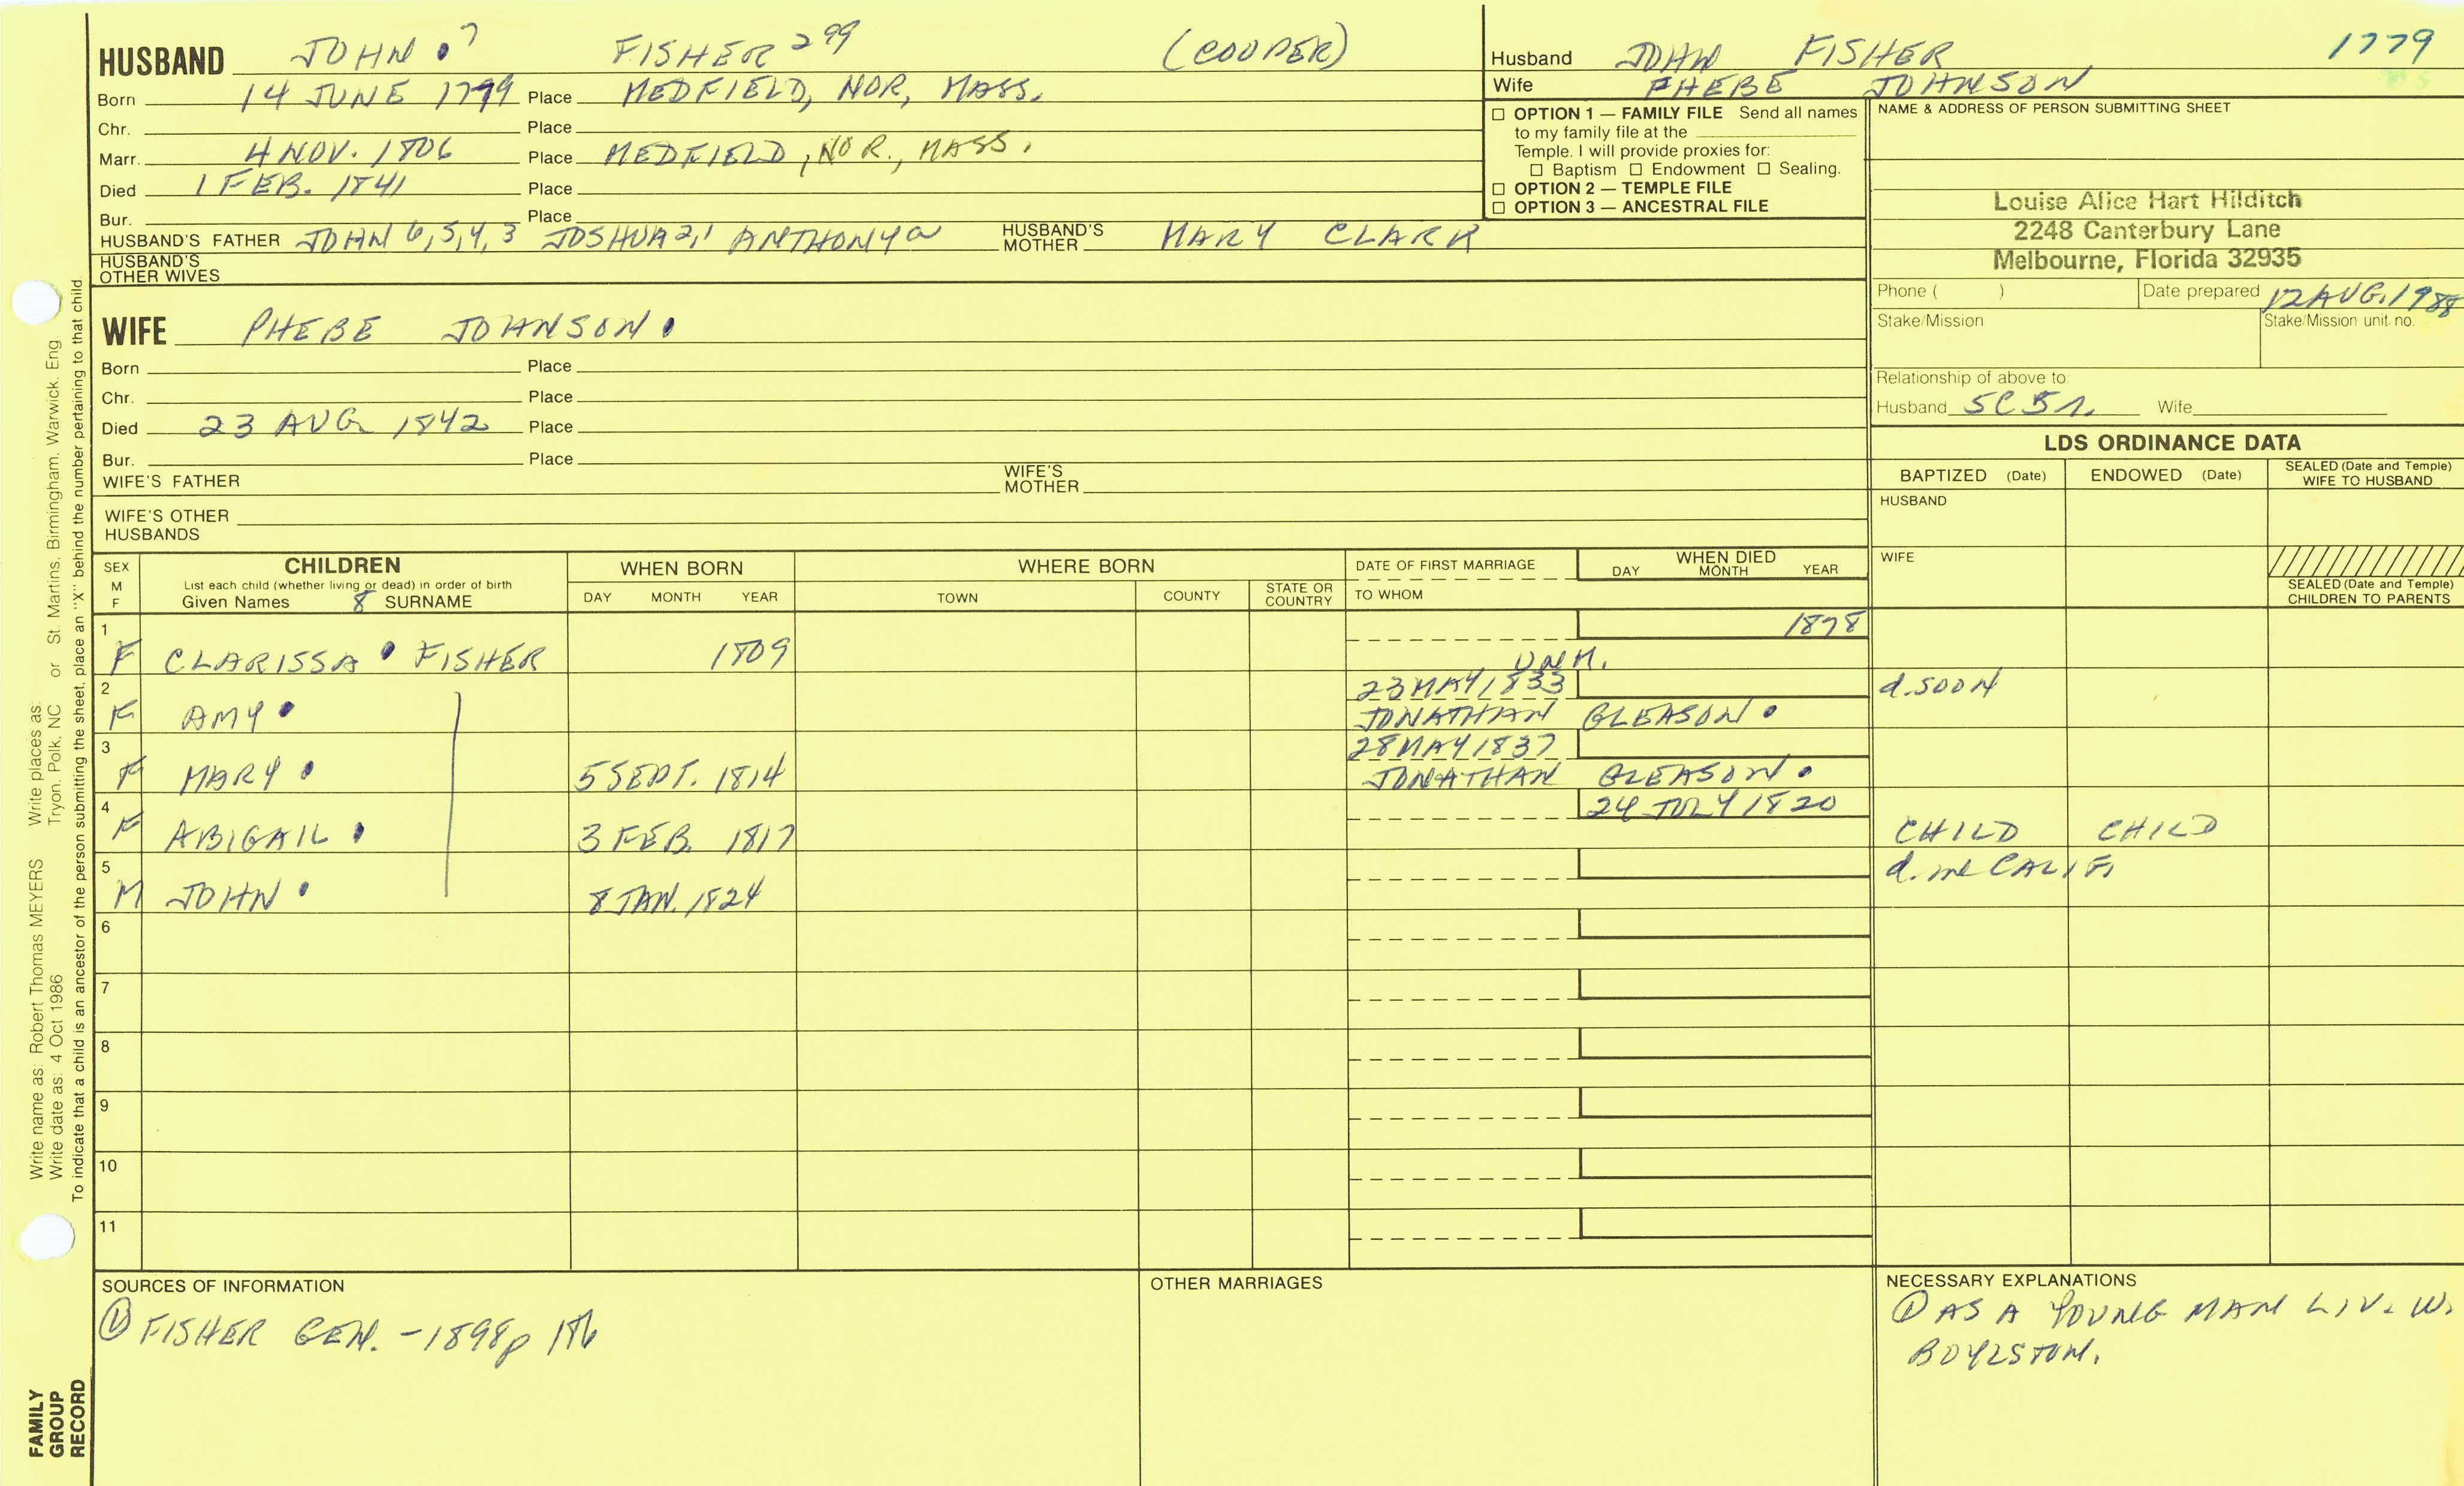 HUSBAND JOHN 7 FISHER 299 (COOPER)
Born 14 JUNE 1779 Place MEDFIELD, NOR, MASS.
Chr. Place
Marr. 4 NOV. 1806 Place MEDFIELD, NOR., MASS.
Died 1 FEB. 1841 Place
Bur. Place
HUSBAND'S FATHER JOHN 6,5,4,3 JOSHUA 2,1 ANTHONY a HUSBAND'S MOTHER MARY CLARK
HUSBAND'S OTHER WIVES
Husband JOHN FISHER 1779
Wife PHEBE JOHNSON
☐ OPTION 1 — FAMILY FILE Send all names
to my family file at the
Temple. I will provide proxies for:
☐ Baptism ☐ Endowment ☐ Sealing.
☐ OPTION 2 — TEMPLE FILE
☐ OPTION 3 — ANCESTRAL FILE
NAME & ADDRESS OF PERSON SUBMITTING SHEET
Louise Alice Hart Hilditch
2248 Canterbury Lane
Melbourne, Florida 32935
Phone ( ) Date prepared 12 AUG. 1988
Stake/Mission Stake/Mission unit no.
Relationship of above to:
Husband 5C5r. Wife
WIFE PHEBE JOHNSON
Born Place
Chr. Place
Died 23 AUG 1842 Place
Bur. Place
WIFE'S FATHER WIFE'S MOTHER
WIFE'S OTHER HUSBANDS
LDS ORDINANCE DATA
BAPTIZED (Date) ENDOWED (Date) SEALED (Date and Temple) WIFE TO HUSBAND
HUSBAND
WIFE
SEALED (Date and Temple) CHILDREN TO PARENTS
SEX M F
CHILDREN
List each child (whether living or dead) in order of birth
Given Names 8 SURNAME
WHEN BORN
DAY MONTH YEAR
WHERE BORN
TOWN COUNTY STATE OR COUNTRY
DATE OF FIRST MARRIAGE
TO WHOM
WHEN DIED
DAY MONTH YEAR
1 F CLARISSA FISHER 1809 UNM. 1878
2 F AMY 23 MAY 1833 JONATHAN GLEASON d. SOON
3 F MARY 5 SEPT. 1814 28 MAY 1837 JONATHAN GLEASON
4 F ABIGAIL 3 FEB. 1817 24 JULY 1820 CHILD CHILD
5 M JOHN 8 JAN. 1824 d. in CALIF.
6
7
8
9
10
11
SOURCES OF INFORMATION
① FISHER GEN. - 1898 p 186
OTHER MARRIAGES
NECESSARY EXPLANATIONS
① AS A YOUNG MAN LIV. W.
BOYLSTON.
Write name as: Robert Thomas MEYERS Write places as: St. Martins, Birmingham, Warwick, Eng.
Write date as: 4 Oct 1986 Tryon, Polk, NC or
To indicate that a child is an ancestor of the person submitting the sheet, place an "X" behind the number pertaining to that child.
FAMILY
GROUP
RECORD